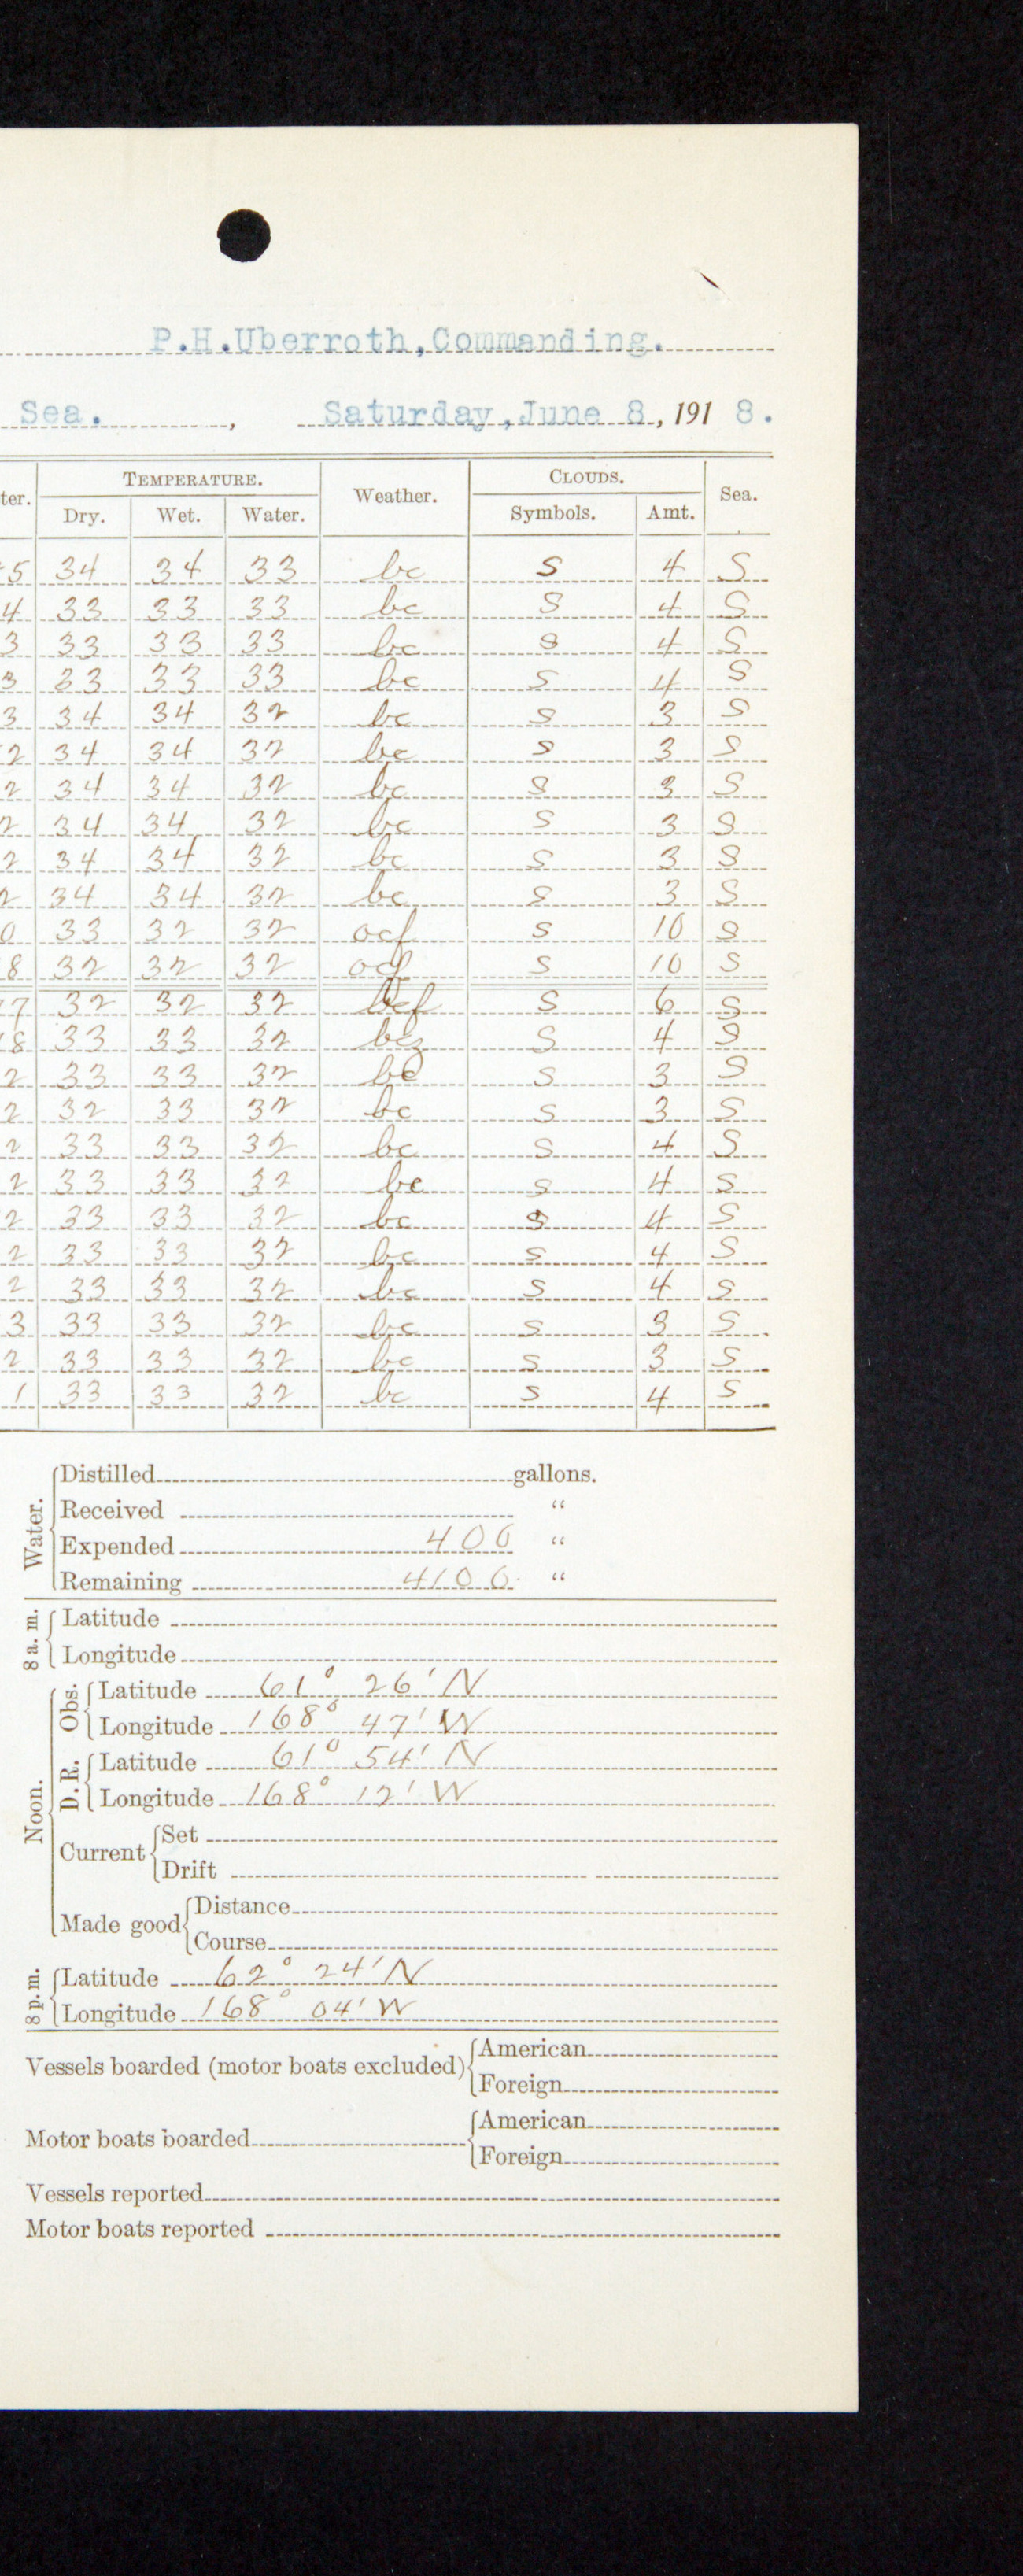 P.H.Uberroth,Commanding.
Sea. , Saturday,June 8, 191 8.
ter. TEMPERATURE. Weather. CLOUDS. Sea.
Dry. Wet. Water. Symbols. Amt.
5 34 34 33 bc S 4 S
4 33 33 33 bc S 4 S
3 33 33 33 bc S 4 S
3 33 33 33 bc S 4 S
3 34 34 32 bc S 3 S
2 34 34 32 bc S 3 S
2 34 34 32 bc S 3 S
2 34 34 32 bc S 3 S
2 34 34 32 bc S 3 S
2 34 34 32 bc S 3 S
0 33 32 32 ocf S 10 S
8 32 32 32 ocf S 10 S
7 32 32 32 bcf S 6 S
8 33 33 32 bcz S 4 S
2 33 33 32 bc S 3 S
2 32 33 32 bc S 3 S
2 33 33 32 bc S 4 S
2 33 33 32 bc S 4 S
2 33 33 32 bc S 4 S
2 33 33 32 bc S 4 S
2 33 33 32 bc S 4 S
3 33 33 32 bc S 3 S
2 33 33 32 bc S 3 S
1 33 33 32 bc S 4 S
Water.
Distilled gallons.
Received "
Expended 400 "
Remaining 4100 "
8 a. m.
Latitude
Longitude
Noon.
Obs.
Latitude 61° 26' N
Longitude 168° 47' W
D. R.
Latitude 61° 54' N
Longitude 168° 12' W
Current
Set
Drift
Made good
Distance
Course
8 p. m.
Latitude 62° 24' N
Longitude 168° 04' W
Vessels boarded (motor boats excluded)
American
Foreign
Motor boats boarded
American
Foreign
Vessels reported
Motor boats reported